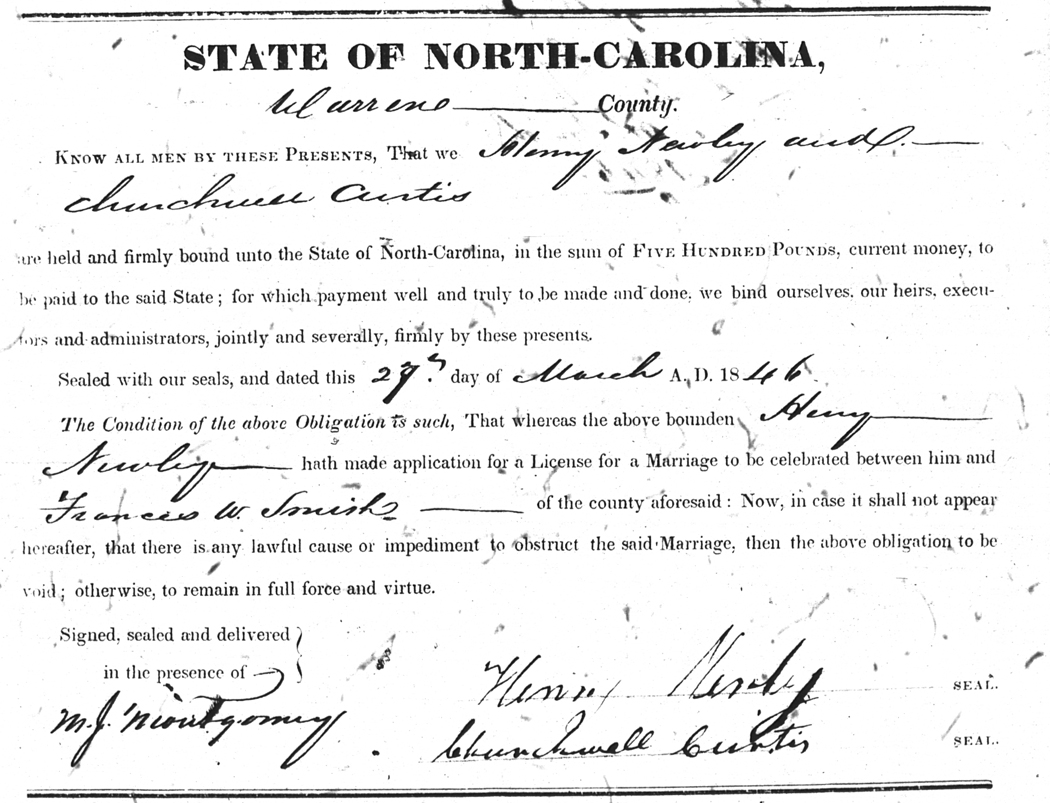 STATE OF NORTH-CAROLINA,
Warren County.
KNOW ALL MEN BY THESE PRESENTS, That we Henry Newby and
Churchwell Curtis
are held and firmly bound unto the State of North-Carolina, in the sum of FIVE HUNDRED POUNDS, current money, to
be paid to the said State; for which payment well and truly to be made and done, we bind ourselves, our heirs, execu-
tors and administrators, jointly and severally, firmly by these presents.
Sealed with our seals, and dated this 27th day of March A. D. 1846.
The Condition of the above Obligation is such, That whereas the above bounden Henry
Newby hath made application for a License for a Marriage to be celebrated between him and
Frances W. Smith of the county aforesaid: Now, in case it shall not appear
hereafter, that there is any lawful cause or impediment to obstruct the said Marriage, then the above obligation to be
void; otherwise, to remain in full force and virtue.
Signed, sealed and delivered
in the presence of
Henry Newby SEAL.
M. J. Montgomery
Churchwell Curtis SEAL.